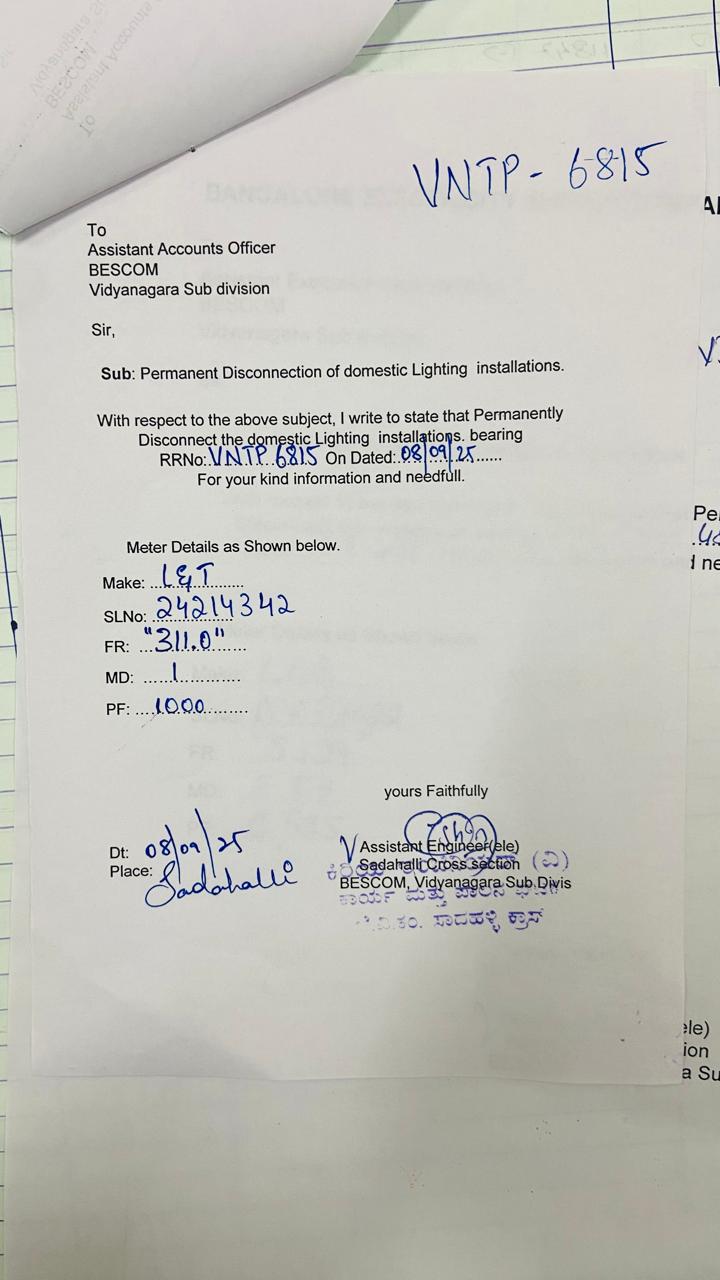 VNTP - 6815
To
Assistant Accounts Officer
BESCOM
Vidyanagara Sub division
Sir,
Sub: Permanent Disconnection of domestic Lighting installations.
With respect to the above subject, I write to state that Permanently
Disconnect the domestic Lighting installations. bearing
RRNo:.VNTP 6815 On Dated:.08/09/25......
For your kind information and needfull.
Meter Details as Shown below.
Make: ...L&T............
SLNo: 24214342
FR: ..."311.0"......
MD: ......1............
PF: ....1000.........
yours Faithfully
Dt: 08/09/25
Place: Sadahalli
Assistant Engineer(ele)
Sadahalli Cross section
BESCOM, Vidyanagara Sub Divis
ಕಾರ್ಯ ಮತ್ತು ಪಾಲನ
ಸಾದಹಳ್ಳಿ ಕ್ರಾಸ್
ele)
ion
a Su